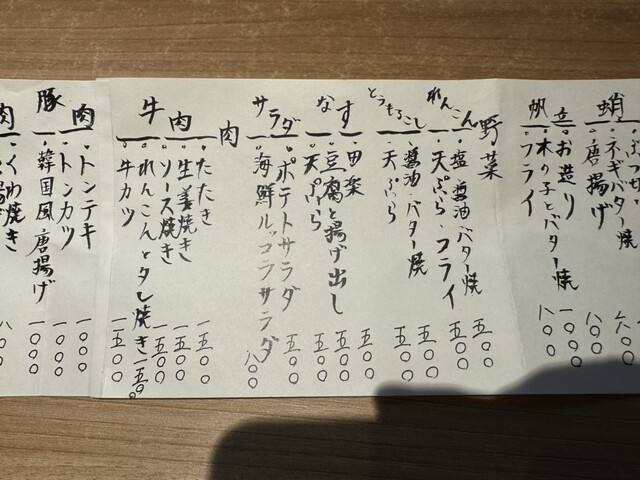 蛸
ネギバター焼 六〇〇
唐揚げ 八〇〇
帆立
お造り 一〇〇〇
木の子とバター焼 八〇〇
フライ
野菜
れんこん
塩・醤油バター焼 五〇〇
天ぷら・フライ 五〇〇
とうもろこし
醤油バター焼 五〇〇
天ぷら 五〇〇
なす
田楽 五〇〇
豆腐と揚げ出し 五〇〇
天ぷら 五〇〇
サラダ
ポテトサラダ 五〇〇
海鮮ルッコラサラダ 八〇〇
肉
牛肉
たたき 一五〇〇
生姜焼き 一五〇〇
ソース焼き 一五〇〇
れんこんとタレ焼き 一五〇〇
牛カツ 一五〇〇
豚肉
トンテキ 一〇〇〇
トンカツ 一〇〇〇
韓国風唐揚げ 一〇〇〇
肉
くわ焼き 八〇〇